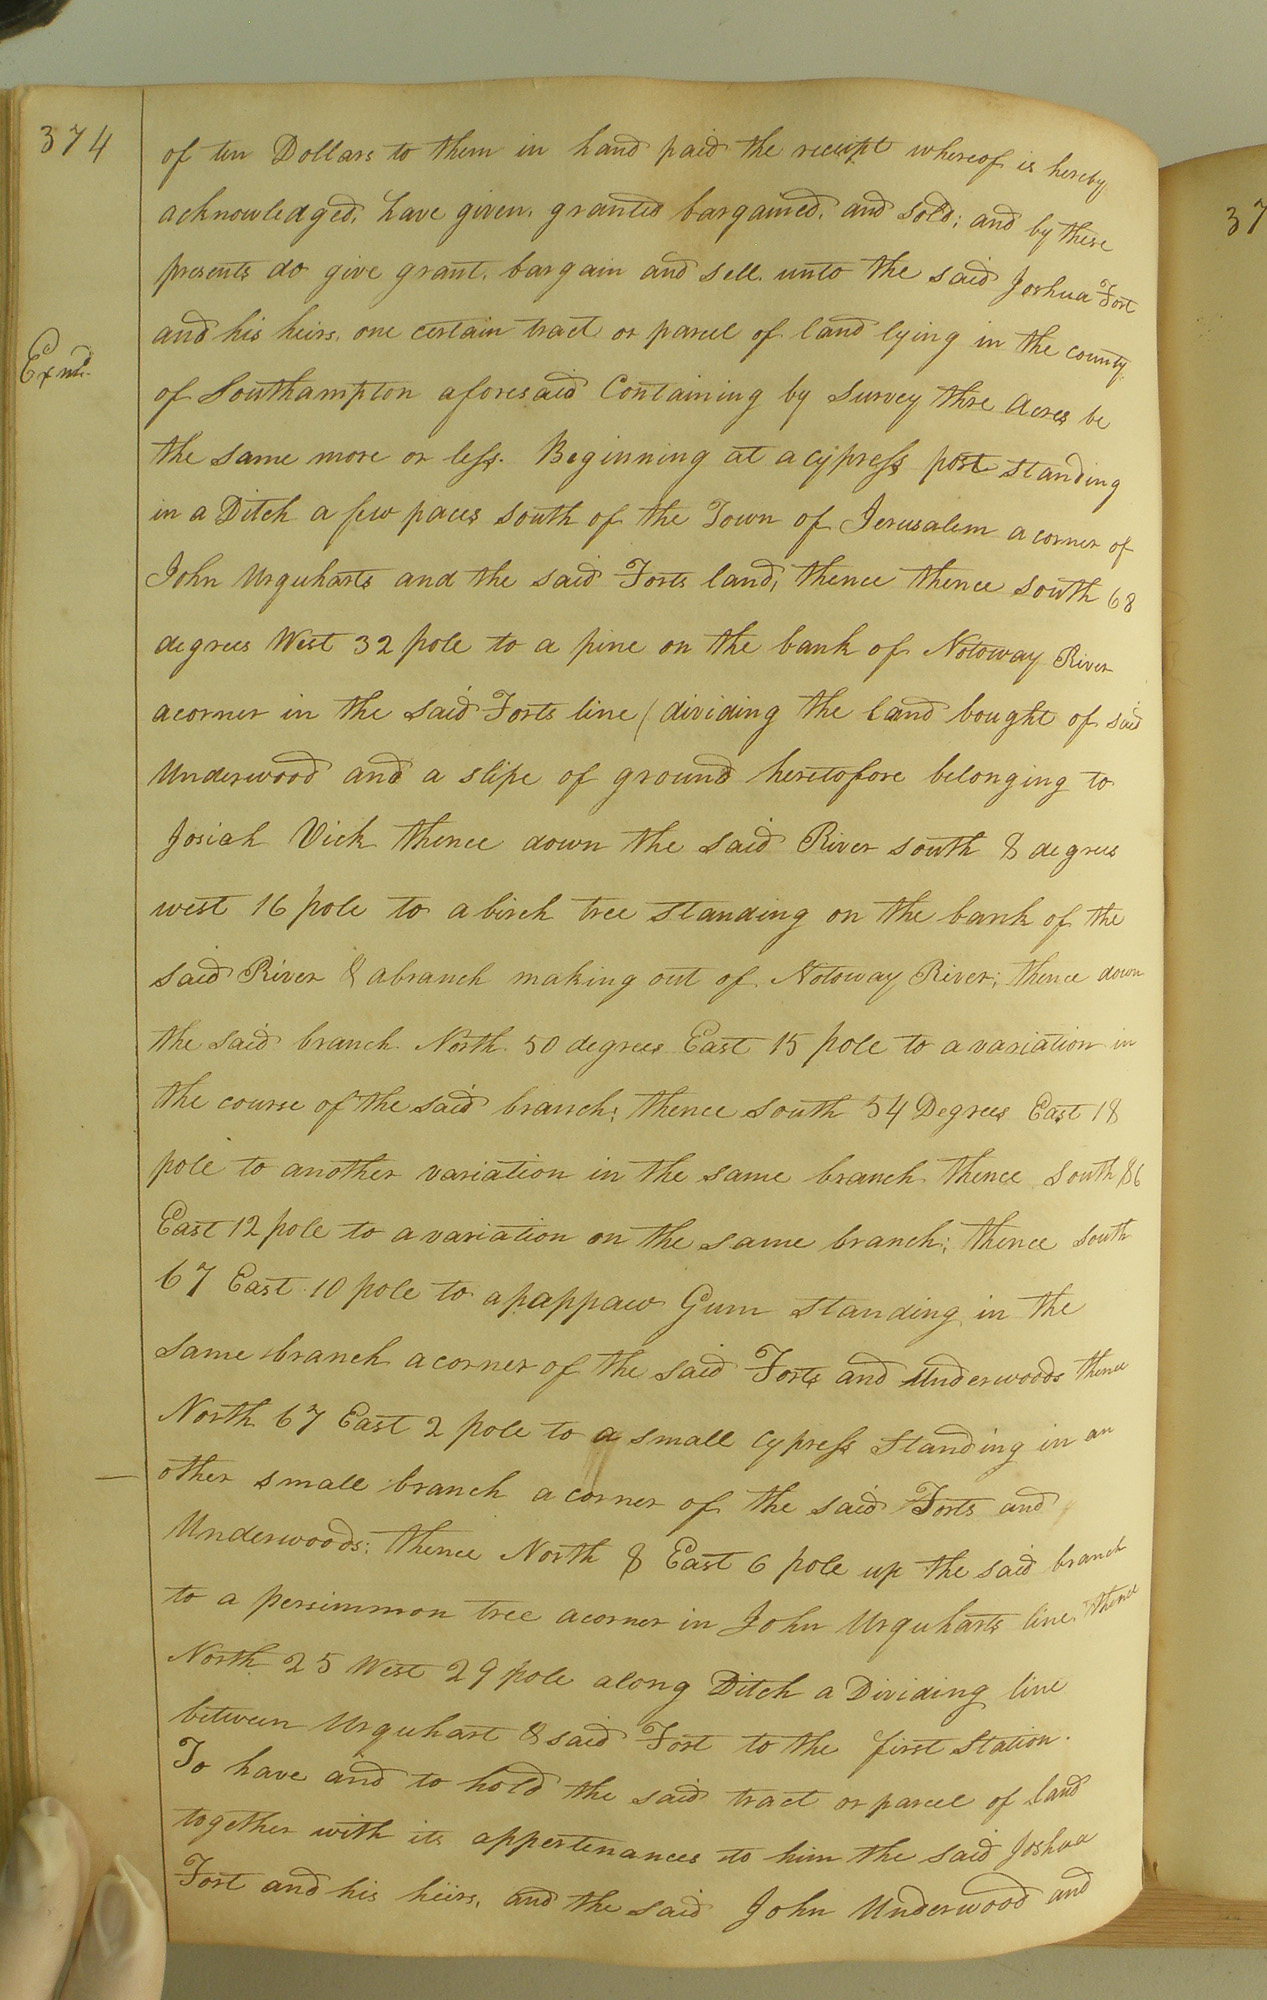 374
of ten Dollars to them in hand paid the receipt whereof is hereby
acknowledged, have given, granted bargained, and sold; and by these
presents do give grant, bargain and sell unto the said Joshua Fort
and his heirs, one certain tract or parcel of land lying in the county
Exmd.
of Southampton aforesaid Containing by survey thre Acres be
the same more or less. Beginning at a cypress post standing
in a Ditch a few paces South of the Town of Jerusalem a corner of
John Urquharts and the said Forts land, thence thence South 68
degrees West 32 pole to a pine on the bank of Notoway River
a corner in the said Forts line (dividing the land bought of said
Underwood and a slipe of ground heretofore belonging to
Josiah Vick thence down the said River south 8 degrees
west 16 pole to a birch tree standing on the bank of the
said River & a branch making out of Notoway River; thence down
the said branch North 50 degrees East 15 pole to a variation in
the course of the said branch; thence South 54 Degrees East 18
pole to another variation in the same branch thence South 86
East 12 pole to a variation on the same branch; thence south
67 East 10 pole to a pappaw Gum standing in the
same branch a corner of the said Forts and Underwoods thence
North 67 East 2 pole to a small cypress standing in an
other small branch a corner of the said Forts and
Underwoods; thence North 8 East 6 pole up the said branch
to a persimmon tree a corner in John Urquharts line, thence
North 25 West 29 pole along Ditch a Dividing line
between Urquhart & said Fort to the first Station.
To have and to hold the said tract or parcel of land
together with its appertenances to him the said Joshua
Fort and his heirs, and the said John Underwood and
37